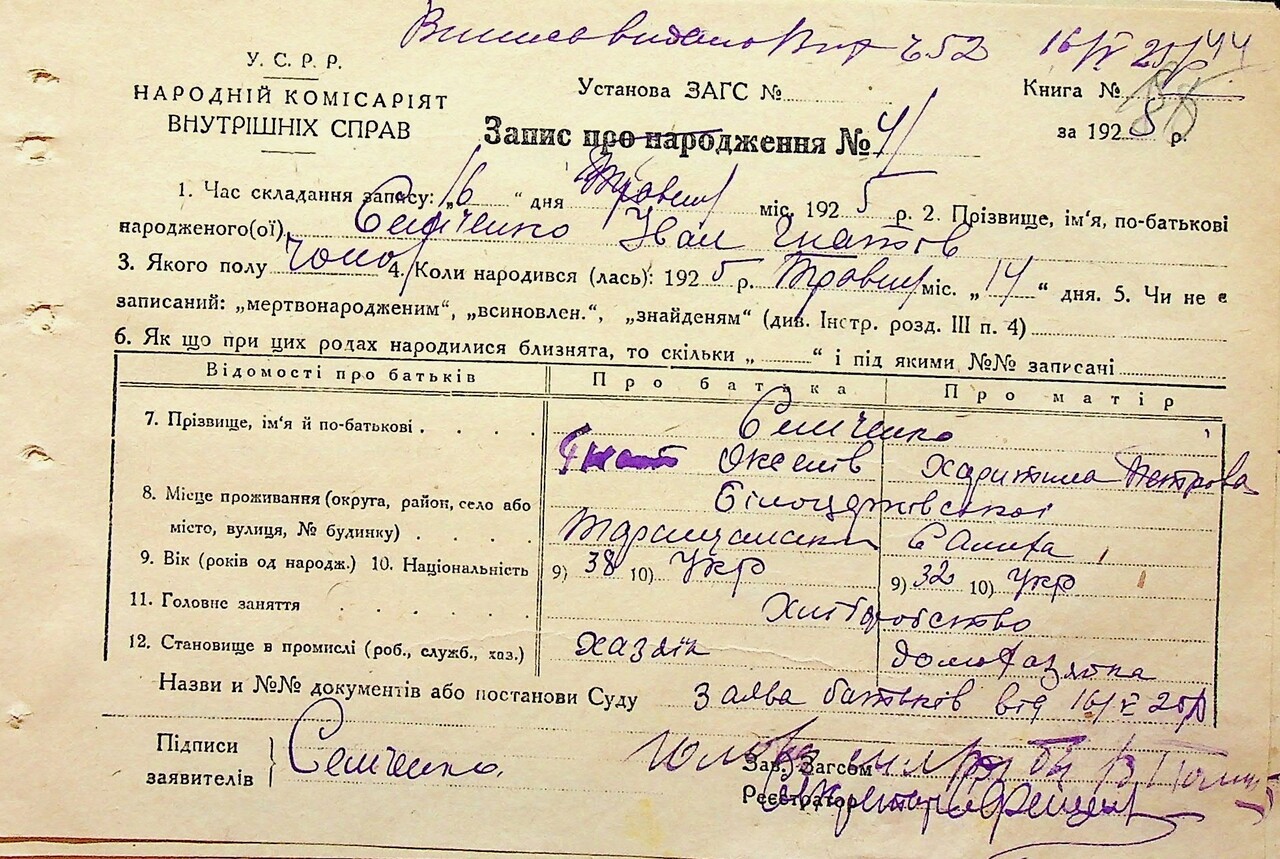 16/V 25р
У.С.Р.Р.
НАРОДНІЙ КОМІСАРІЯТ
ВНУТРІШНІХ СПРАВ
Установа ЗАГС №
Книга №
за 1925 р.
Запис про народження №
1. Час складання запису: „16“ дня Травня міс. 1925 р. 2. Прізвище, ім'я, по-батькові
народженого(ої) Семченко Іван Гнатов
3. Якого полу чолов 4. Коли народився (лась): 1925 р. Травня міс. „14“ дня. 5. Чи не є
записаний: „мертвонародженим“, „всиновлен.“, „знайденям“ (див. Інстр. розд. III п. 4)
6. Як що при цих родах народилися близнята, то скільки „ “ і під якими №№ записачі
Відомості про батьків Про батька Про матір
7. Прізвище, ім'я й по-батькові Семченко
Гнат Харитина Петрова
8. Місце проживання (округа, район, село або Білоцерківської
місто, вулиця, № будинку) Таращанськ
9. Вік (років од народж.) 10. Національність 9) 38 10) Укр 9) 32 10) Укр
11. Головне заняття Хліборобство
12. Становище в промислі (роб., служб., хаз.) хазяїн домохазяйка
Назви и №№ документів або постанови Суду Заява батьків від 16/V 25р
Підписи
заявителів Семченко.
Зав. Загсом
Реєстратор